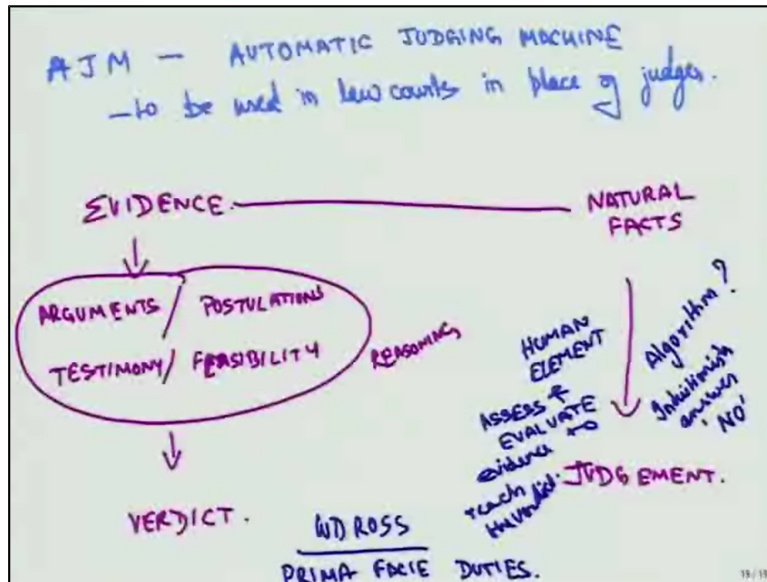 AJM – AUTOMATIC JUDGING MACHINE
– to be used in law courts in place of judges.
EVIDENCE
NATURAL
FACTS
ARGUMENTS / POSTULATIONS
TESTIMONY / FEASIBILITY
REASONING
HUMAN
ELEMENT
ASSESS &
EVALUATE
evidence to
reach
Algorithm?
Intuitionists
answer
'NO'
VERDICT.
JUDGEMENT.
WD ROSS
PRIMA FACIE DUTIES.
19/19